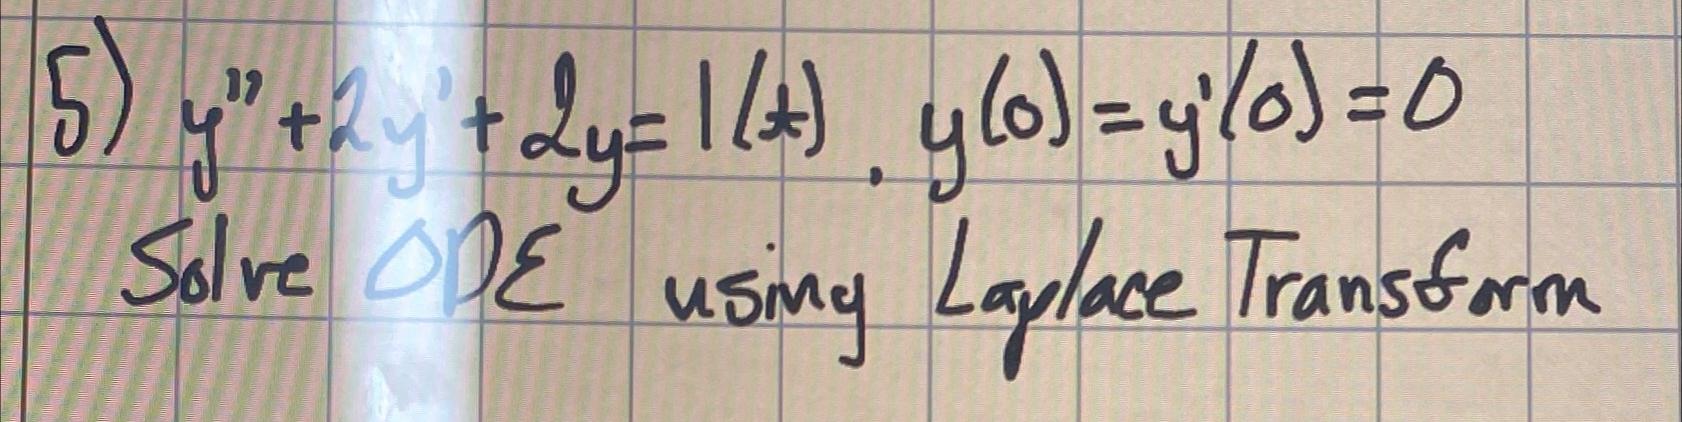 5) y'' + 2y' + 2y = 1(t) . y(0) = y'(0) = 0
Solve ODE using Laplace Transform